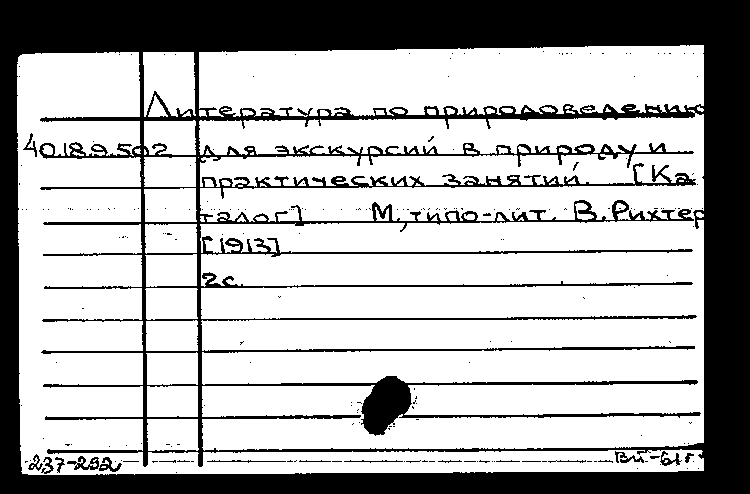 Литература по природоведению
40.18.9.502 для экскурсий в природу и
практических занятий. [Ка-
талог] М., типо-лит. В. Рихтер
[1913]
2с.
237-292